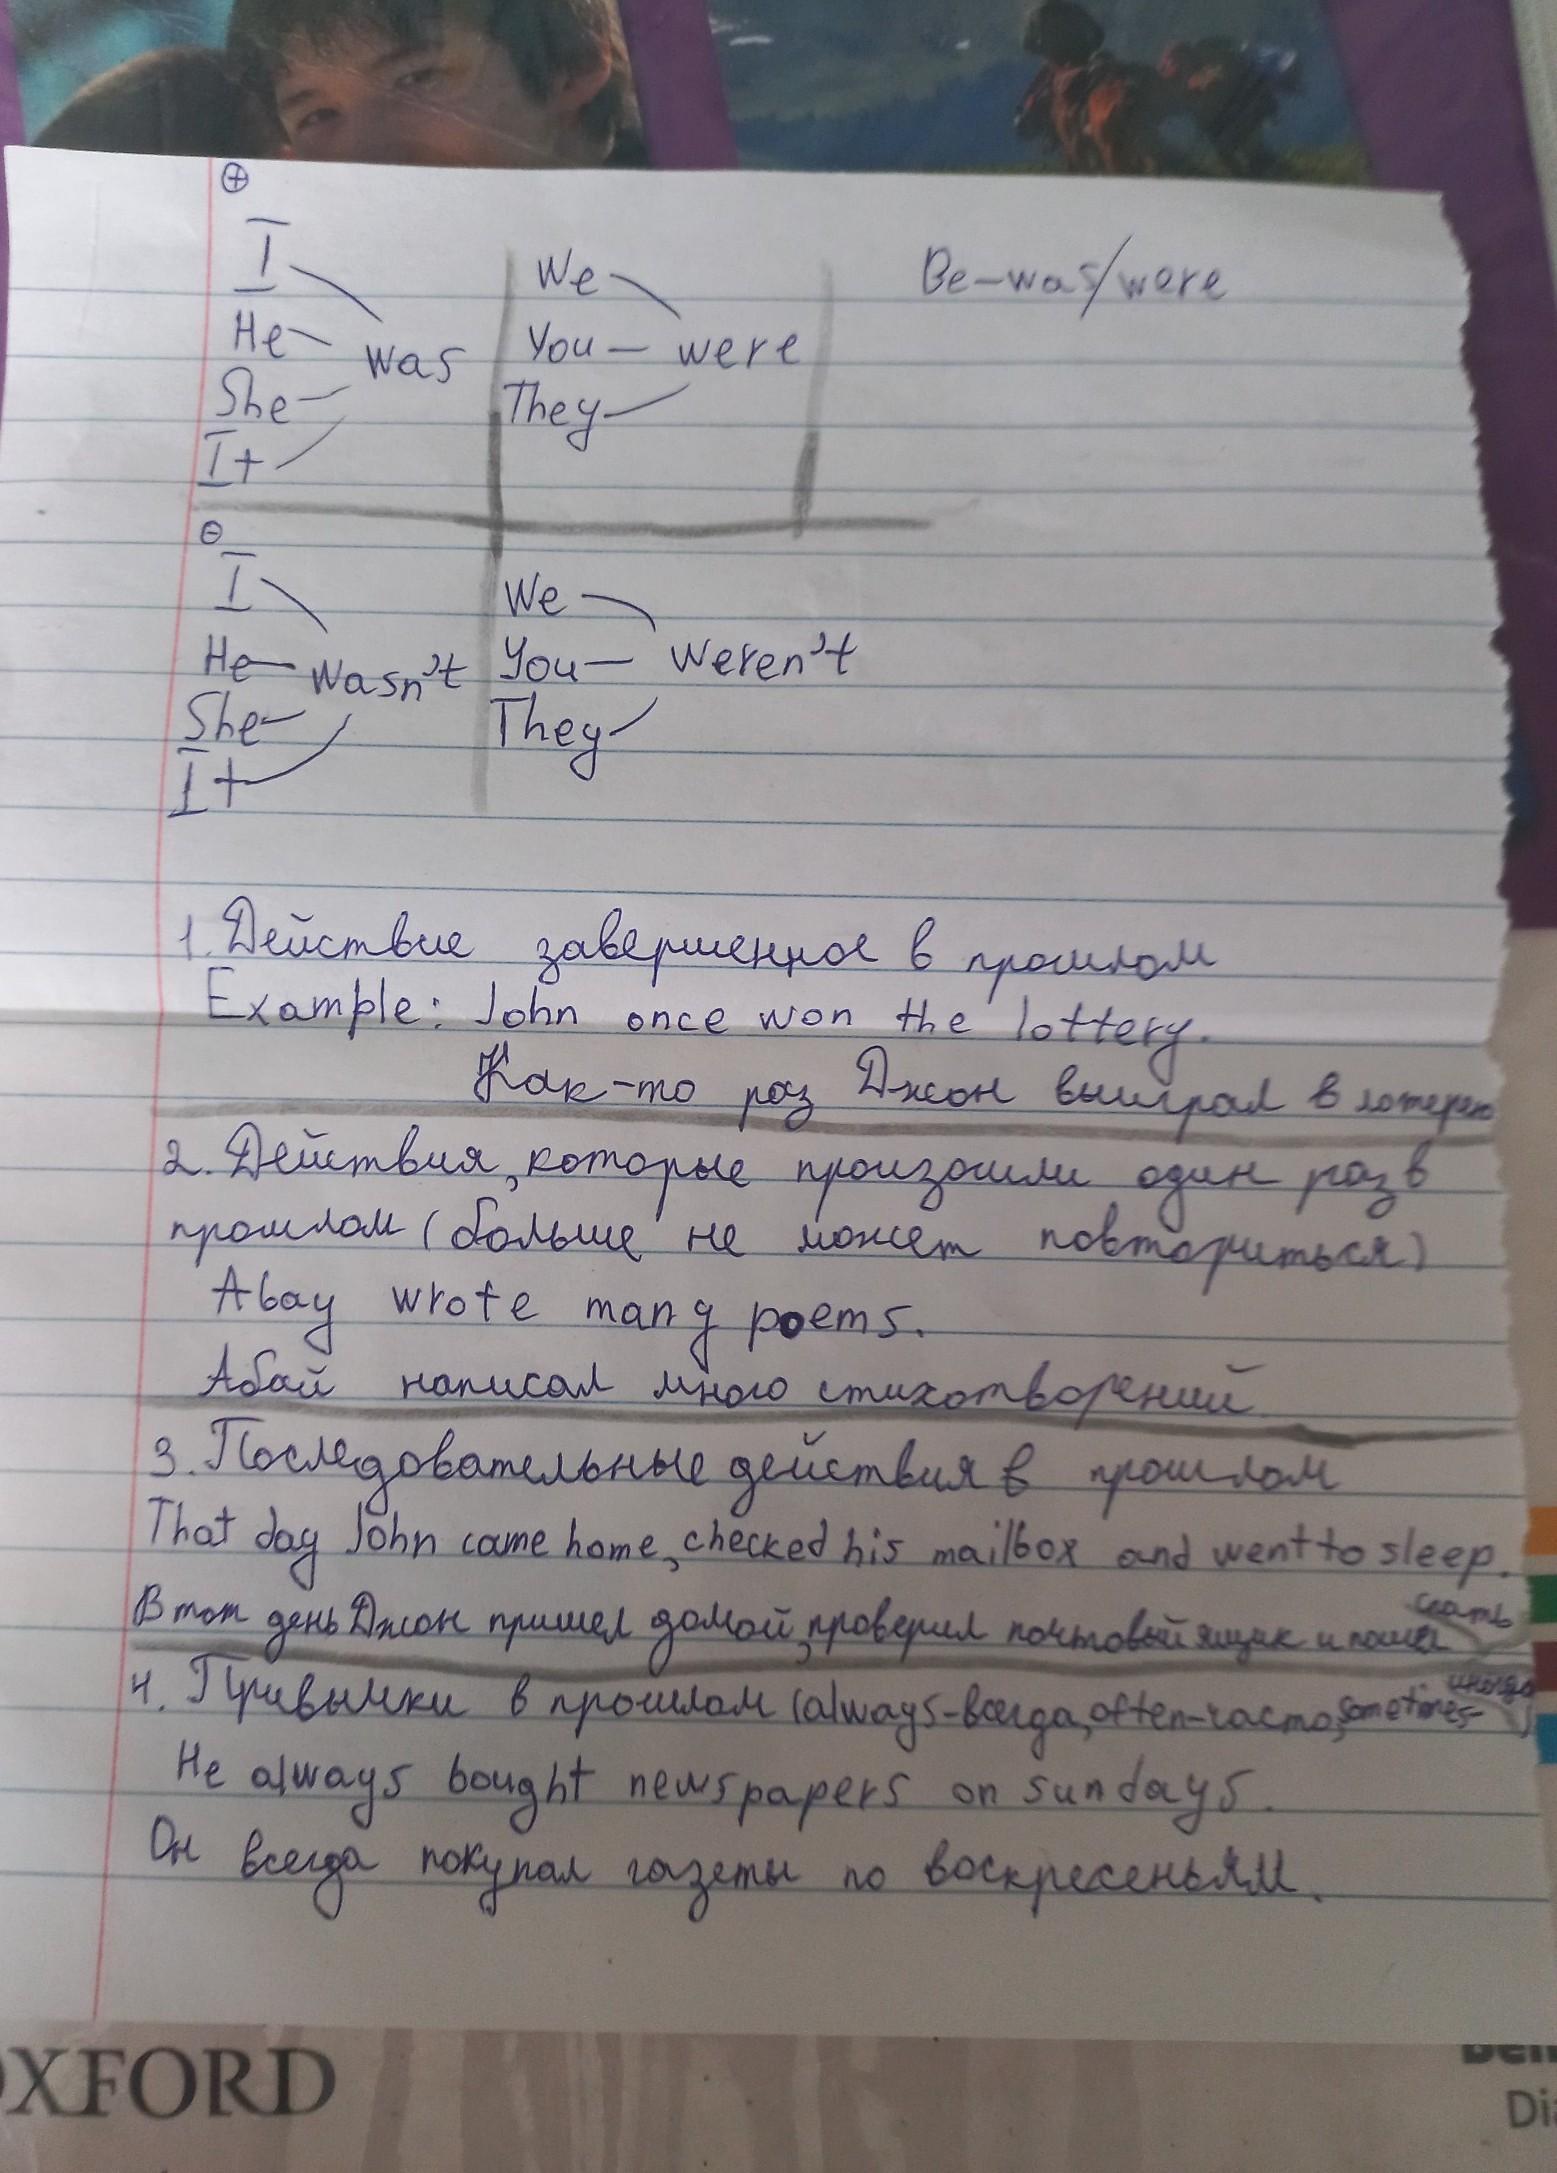 ⊕
I
He
She
It
was
We
You — were
They
Be-was/were
⊖
I
He
She
It
wasn't
We
You — weren't
They
1. Действие завершенное в прошлом
Example: John once won the lottery.
Как-то раз Джон выиграл в лотерею
2. Действия, которые произошли один раз в
прошлом (больше не может повториться)
Abay wrote many poems.
Абай написал много стихотворений
3. Последовательные действия в прошлом
That day John came home, checked his mailbox and went to sleep.
В тот день Джон пришел домой, проверил почтовый ящик и пошел спать
4. Привычки в прошлом (always-всегда, often-часто, sometimes-иногда)
He always bought newspapers on sundays.
Он всегда покупал газеты по воскресеньям.
OXFORD
Di